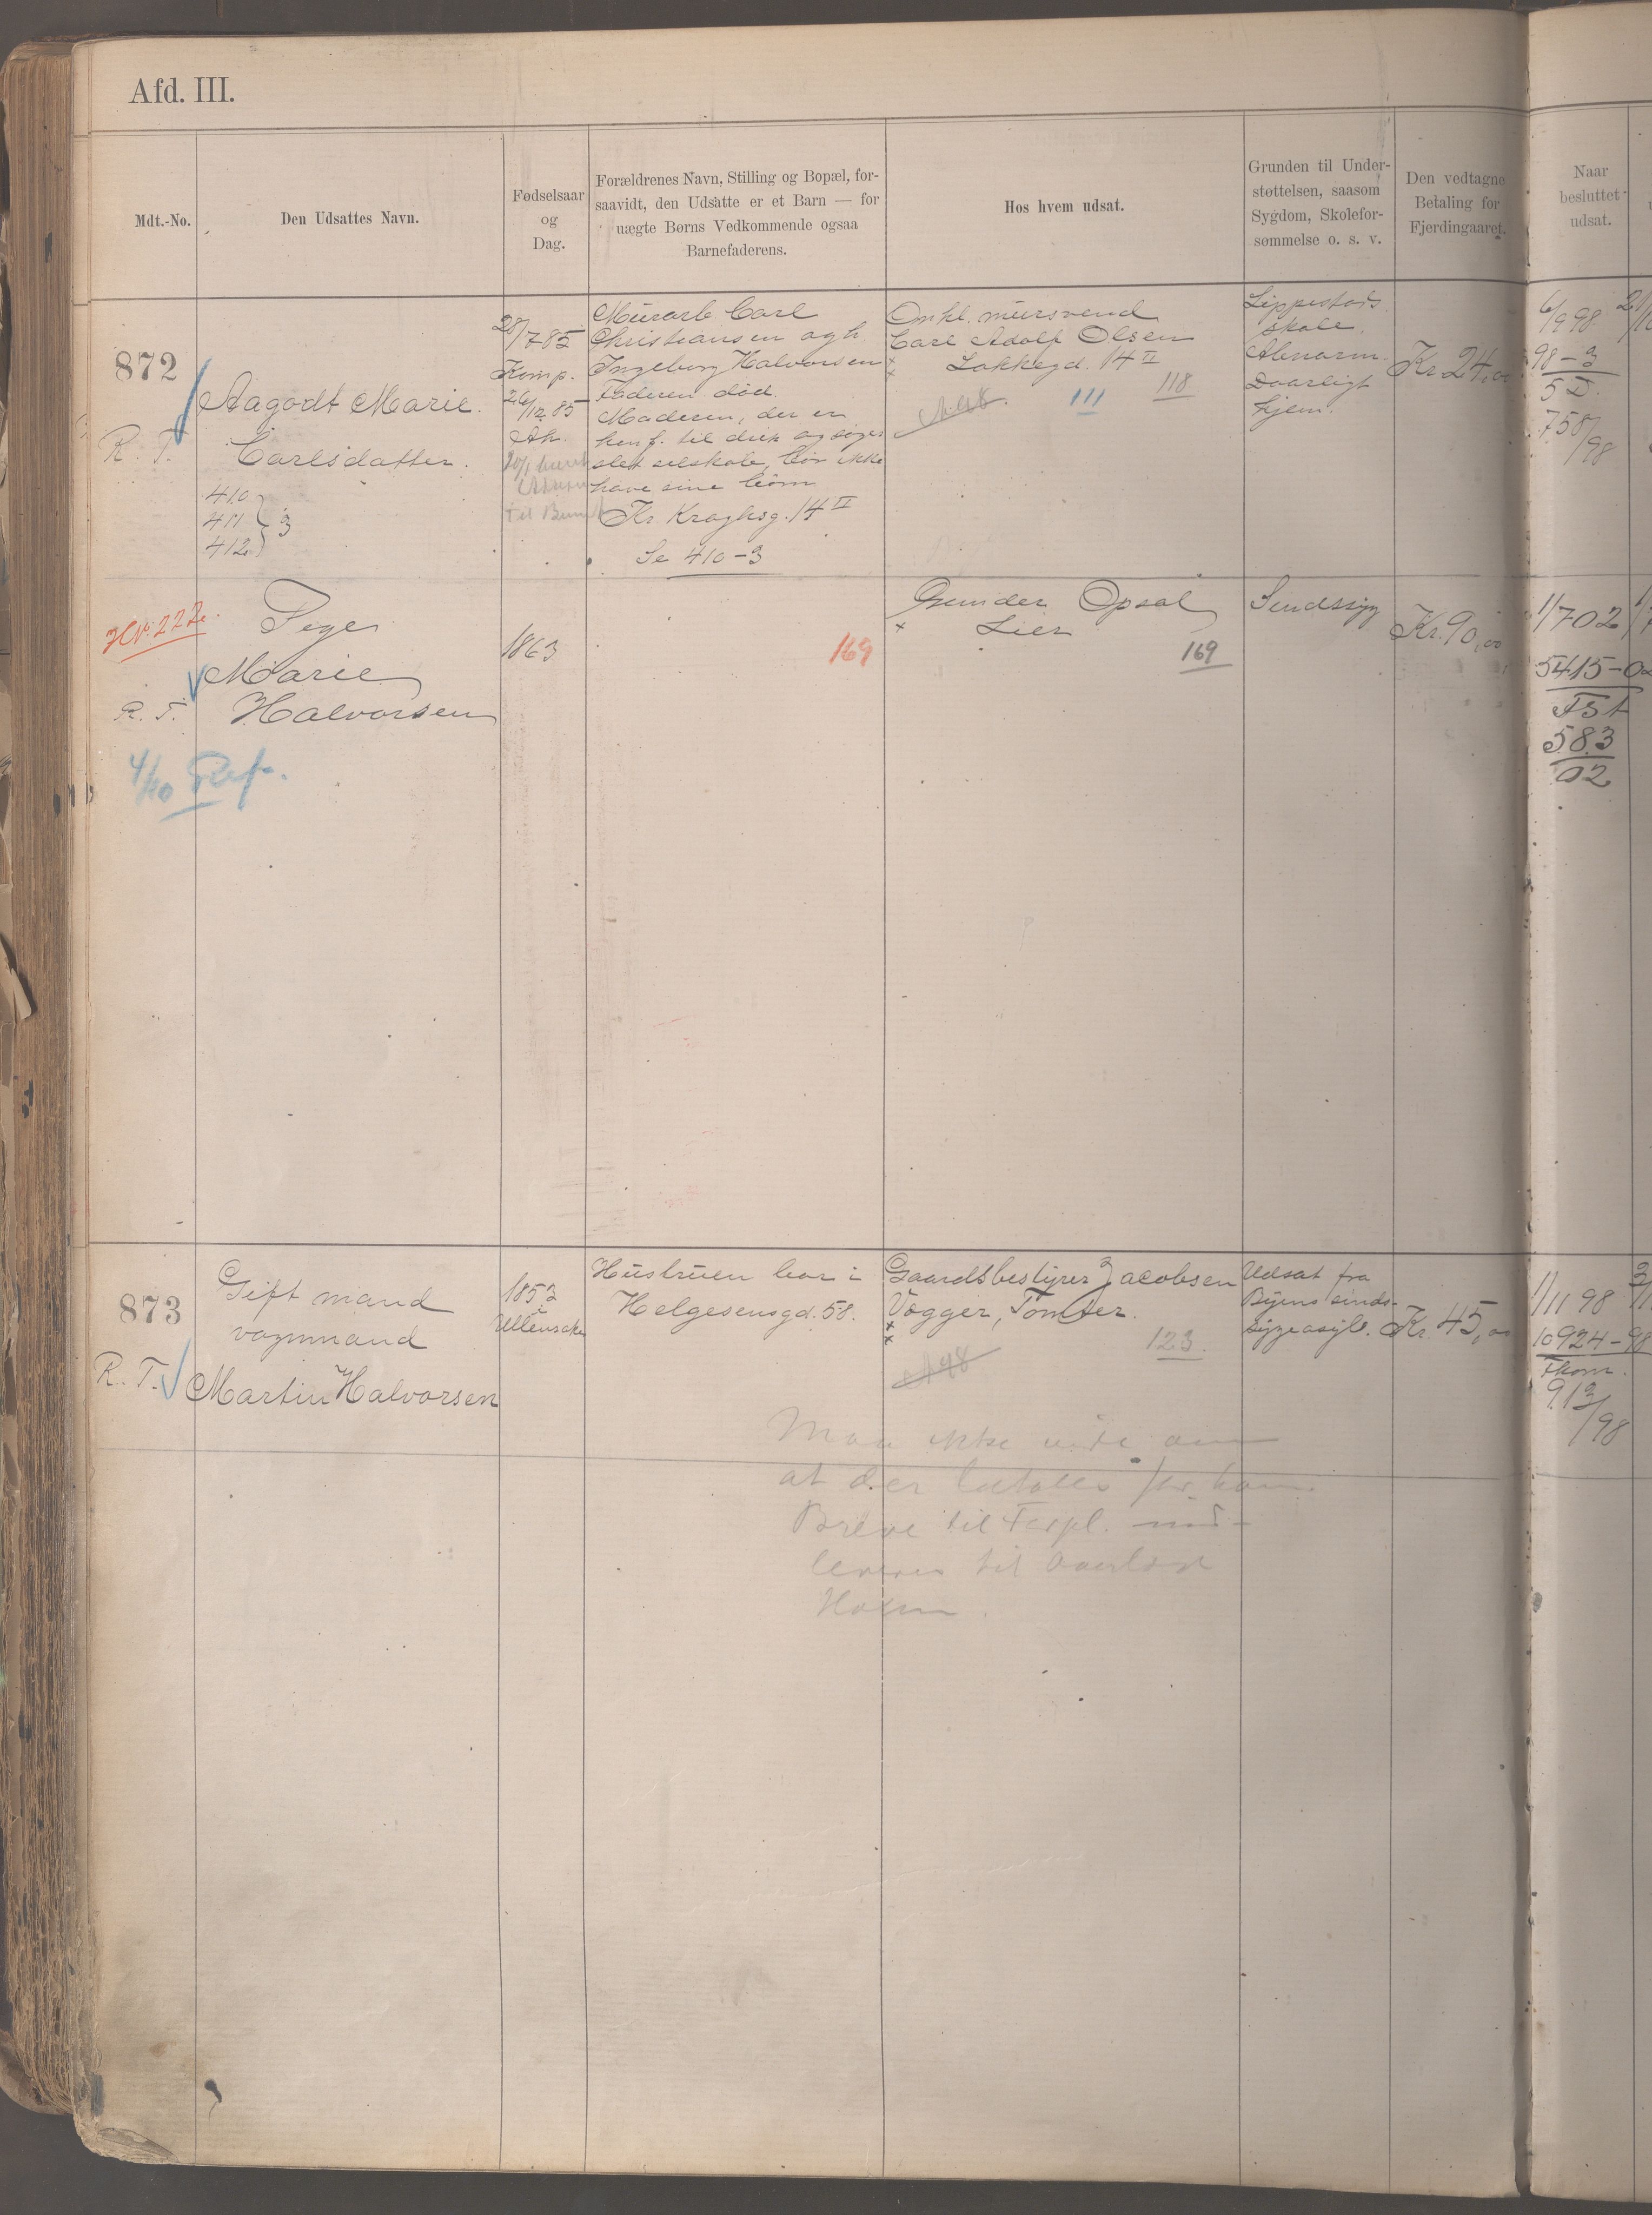 Afd. III.
Mdt.-No.
Den Udsattes Navn.
Fødselsaar
og
Dag.
Forældrenes Navn, Stilling og Bopæl, for-
saavidt, den Udsatte er et Barn — for
uægte Børns Vedkommende ogsaa
Barnefaderens.
Hos hvem udsat.
Grunden til Under-
støttelsen, saasom
Sygdom, Skolefor-
sømmelse o. s. v.
Den vedtagne
Betaling for
Fjerdingaaret.
Naar
besluttet
udsat.
872
R. T.
Aagodt Marie
Carlsdatter.
410
411
412
3
28/7 85
Komp.
26/12 85
Ak.
Murarb Carl
Christiansen og h.
Ingeborg Halvorsen
Faderen død.
Moderen, der er
henf. til drik og søger
slet selskab, bør ikke
have sine børn
Kr Kroghsg. 14 II
Se 410-3
Onkl. mursvend
Carl Adolf Olsen
Lakkegd. 14 II
111
118
Lippestads
skole.
Abnorm.
Daarligt
hjem.
Kr 24,00
6/9 98
98-3
5 D.
758/98
R. T.
Pige
Marie
Halvorsen
4/10 Ref.
1863
169
Gunder Opsal
Lier
169
Sindssyg
Kr. 90,00
1/7 02
5415-02
FSt
583
02
873
R. T.
Gift mand
vognmand
Martin Halvorsen
1853
i
Ullensaker
Hustruen bor i
Helgesensgd. 58.
Gaardsbestyrer Jacobsen
Vogger, Tomter.
123.
A 98
Udsat fra
Byens sinds-
sygeasyl.
Kr. 45,00
1/11 98
10924-98
Fkom.
913/98
Maa ikke vide om
at der betales for ham.
Breve til Forpl.
leveres til Overlæge